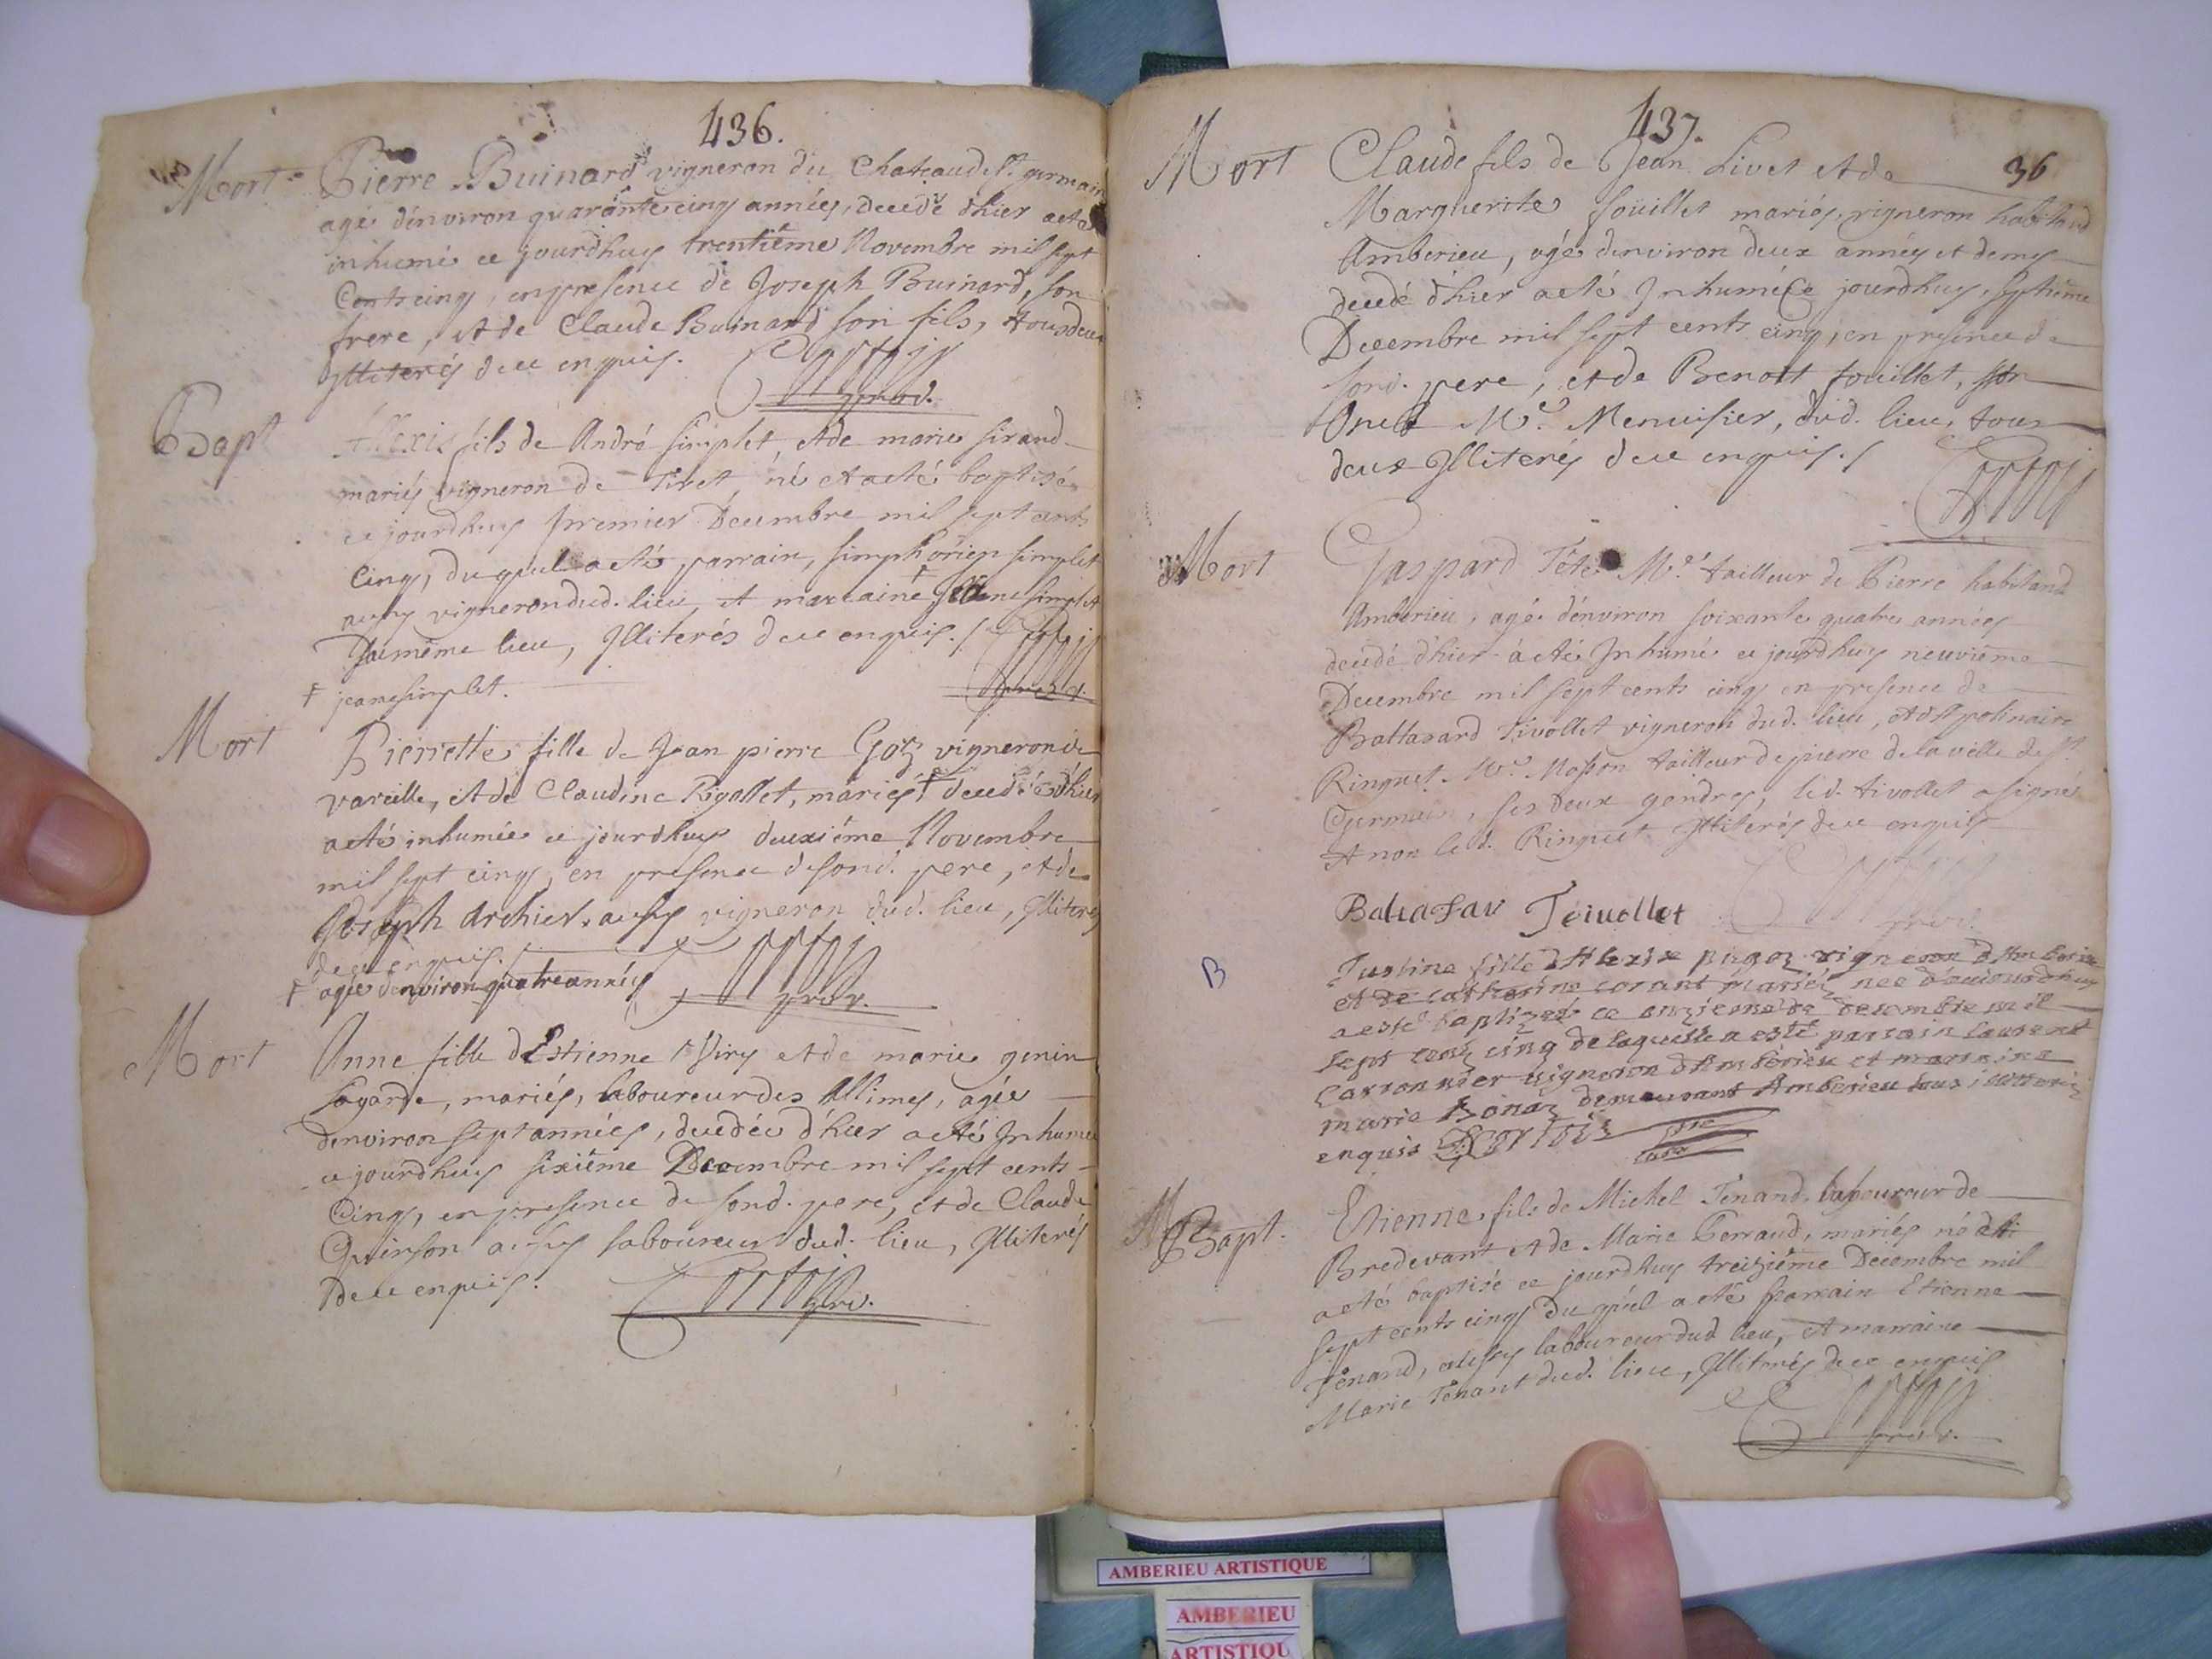 436.
Mort
Pierre Buinard vigneron du Chateau de St germain
agé d'environ quarantecinq années, decedé d'hier aeté
inhumé ce jourdhuy trentième Novembre mil sept
Cents cinq, en presence de Joseph Buinard, son
frere, et de Claude Buinard son fils, tous deux
Illiterés de ce enquis.
Bapt
Allexis fils de André Simplet, et de marie Sirand
mariés vigneron de Tiret, né et aeté baptisé
ce jourdhuy premier Decembre mil sept cents
Cinq, du quel aeté parrain, Simphorien Simplet
aussy vigneron dud. lieu, et marraine †
Du même lieu, Illiterés de ce enquis./
† jeane simplet.
Mort
Pierrette fille de Jean pierre Gotz vigneron de
vareille, et de Claudine Rigollet, mariés † decedée d'hier
aeté inhumée ce jourdhuy deuxiéme Novembre
mil sept cinq, en presence de sond. pere, et de
Joseph Archier aussy vigneron dud. lieu, Illiterés
de ce enquis./
† agée denviron quatre années
Mort
Anne fille d'Estienne Viry et de marie genin
Lagarde, mariés, laboureur des Allimes, agée
denviron sept années, decedée d'hier aeté Inhumée
ce jourdhuy sixiême Decembre mil sept cents
Cinq, en presence de sond. pere, et de Claude
Quinson aussy laboureur dud. lieu, Illiterés
De ce enquis.
437.
36
Mort
Claude fils de Jean Livet et de
Marguerite fouillet mariés, vigneron habitand
Amberieu, agé denviron deux annéẽs et demy
decedé d'hier aeté Inhumé ce jourdhuy septiéme
Decembre mil sept cents cinq, en presence de
sond. pere, et de Benoit fouillet, son
Oncle Me. Menuisier, dud. lieu, tous
deux Illiterés de ce enquis./
Mort
Gaspard Tête Me. tailleur de Pierre habitand
Amberieu, agé d'environ soixante quatre années
decedé d'hier aeté Inhumé ce jourdhuy neuviême
Decembre mil sept cents cinq en presence de
Baltasard Tivollet vigneron dud. lieu, et d'Apolinaire
Ringuet Me. Masson tailleur de pierre de la ville de St.
Germain, ses deux gendres, led. tivollet a signé
et non led. Ringuet Illiterés de ce enquis
Baltasar Teiuollet
B
Justine fille d'Alexix vigneron d'Amberieu
et de catherine corant mariés nee d'aujourdhuy
a esté baptizeé ce onzieme de desembre mil
sept cens cinq de laquelle a esté parrain laurent
Carronnier vigneron d'Amberieu et marraine
marie Bonaz demeurant Amberieu tous illitteris
enquis
Bapt.
Etienne, fils de Michel Tenand, laboureur de
Bredevant et de Marie Perraud, mariés né
aeté baptisé ce jourdhuy treiziême Decembre mil
sept cents cinq du quel aeté parrain Etienne
Tenand, aussy laboureur dud. lieu, et marraine
Marie Tenant dud. lieu, Illiterés de ce enquis
AMBERIEU ARTISTIQUE
AMBERIEU
ARTISTIQU